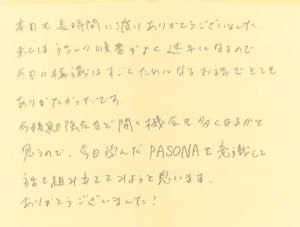 本日も長時間に渡りありがとうございました。
私は話しの順番がよく迷子になるので
今日の講義はすごくためになるお話でとても
ありがたかったです。
今後勉強会など開く機会も多くなるかと
思うので、今日学んだPASONAを意識して
話を組み立ててみようと思います。
ありがとうございました!